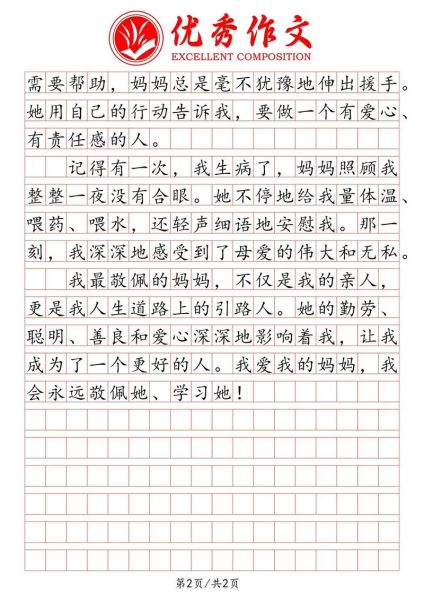 优秀作文
EXCELLENT COMPOSITION
需要帮助，妈妈总是毫不犹豫地伸出援手。
她用自己的行动告诉我，要做一个有爱心、
有责任感的人。
记得有一次，我生病了，妈妈照顾我
整整一夜没有合眼。她不停地给我量体温、
喂药、喂水，还轻声细语地安慰我。那一
刻，我深深地感受到了母爱的伟大和无私。
我最敬佩的妈妈，不仅是我的亲人，
更是我人生道路上的引路人。她的勤劳、
聪明、善良和爱心深深地影响着我，让我
成为了一个更好的人。我爱我的妈妈，我
会永远敬佩她、学习她！
第2页/共2页